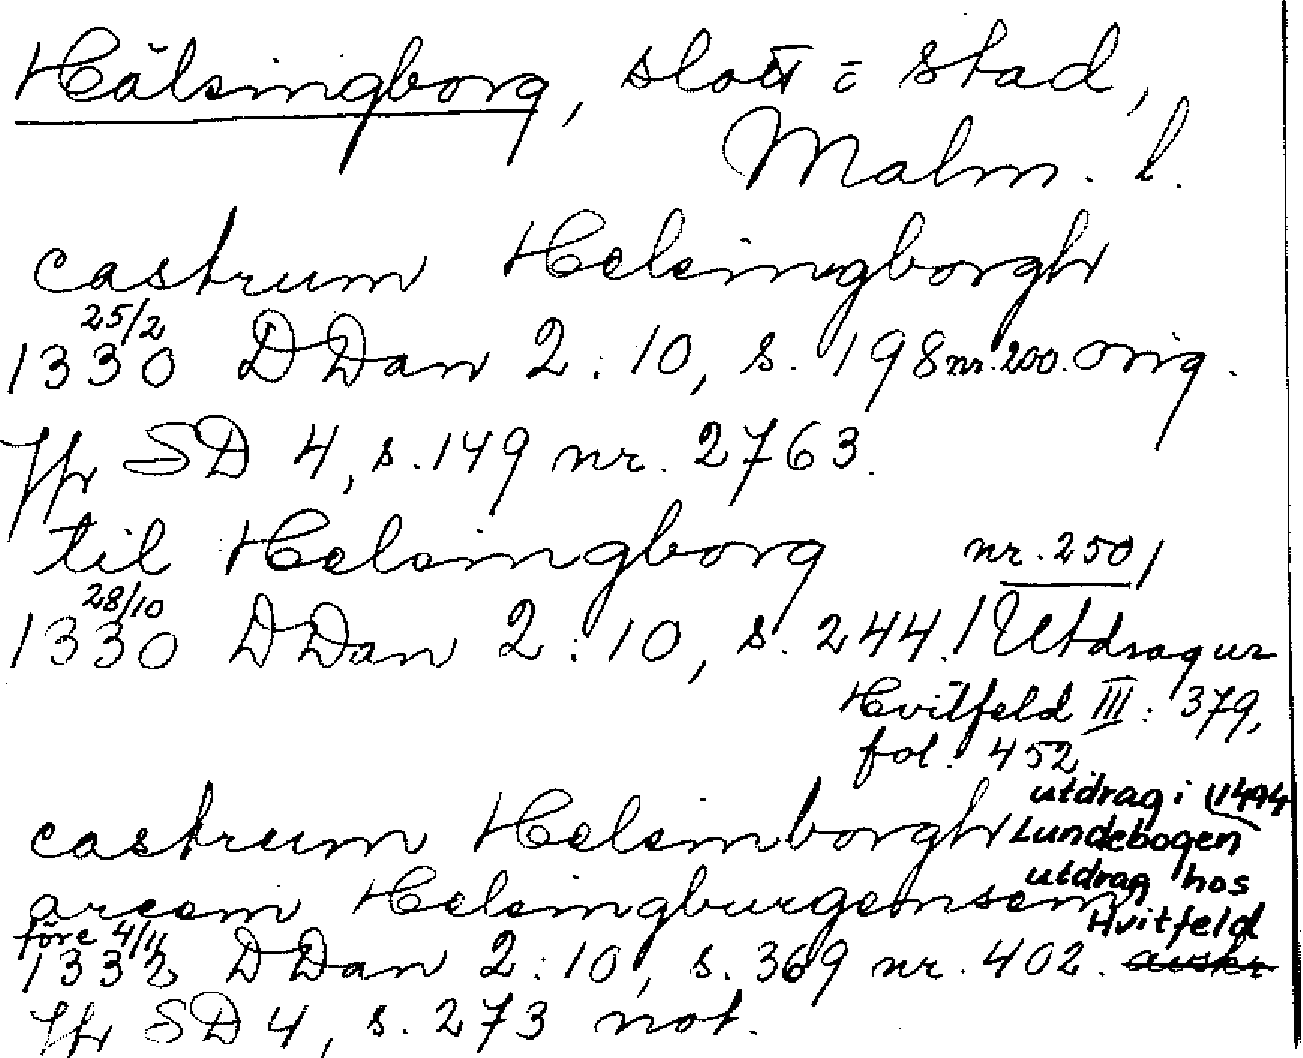 Hälsingborg, slott o stad,
Malm. l.
castrum Helsingborgh
25/2
1330 DDan 2:10, s. 198 nr. 200. Orig.
Jfr SD 4, s. 149 nr. 2763.
til Helsingborg nr. 250/
28/10
1330 DDan 2:10, s. 244./Utdrag ur
Hvitfeld III: 379,
fol. 452
utdrag i (1494
castrum Helsimborgh Lundebogen
utdrag hos
arcem Helsingburgensem Hvitfeld
före 4/11
1332 DDan 2:10, s. 369 nr. 402. avskr
Jfr SD 4, s. 273 not.